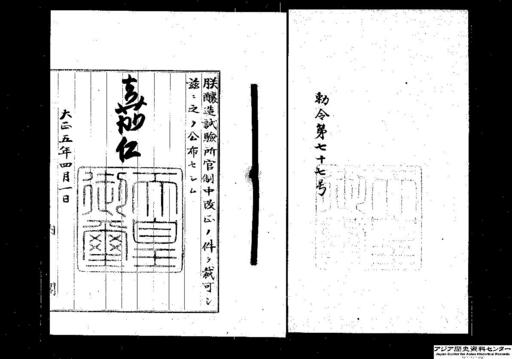 朕醸造試験所官制中改正ノ件ヲ裁可シ
玆ニ之ヲ公布セシム
嘉仁
天皇
御璽
大正五年四月一日
内閣
勅令第七十七号
アジア歴史資料センター
Japan Center for Asian Historical Records